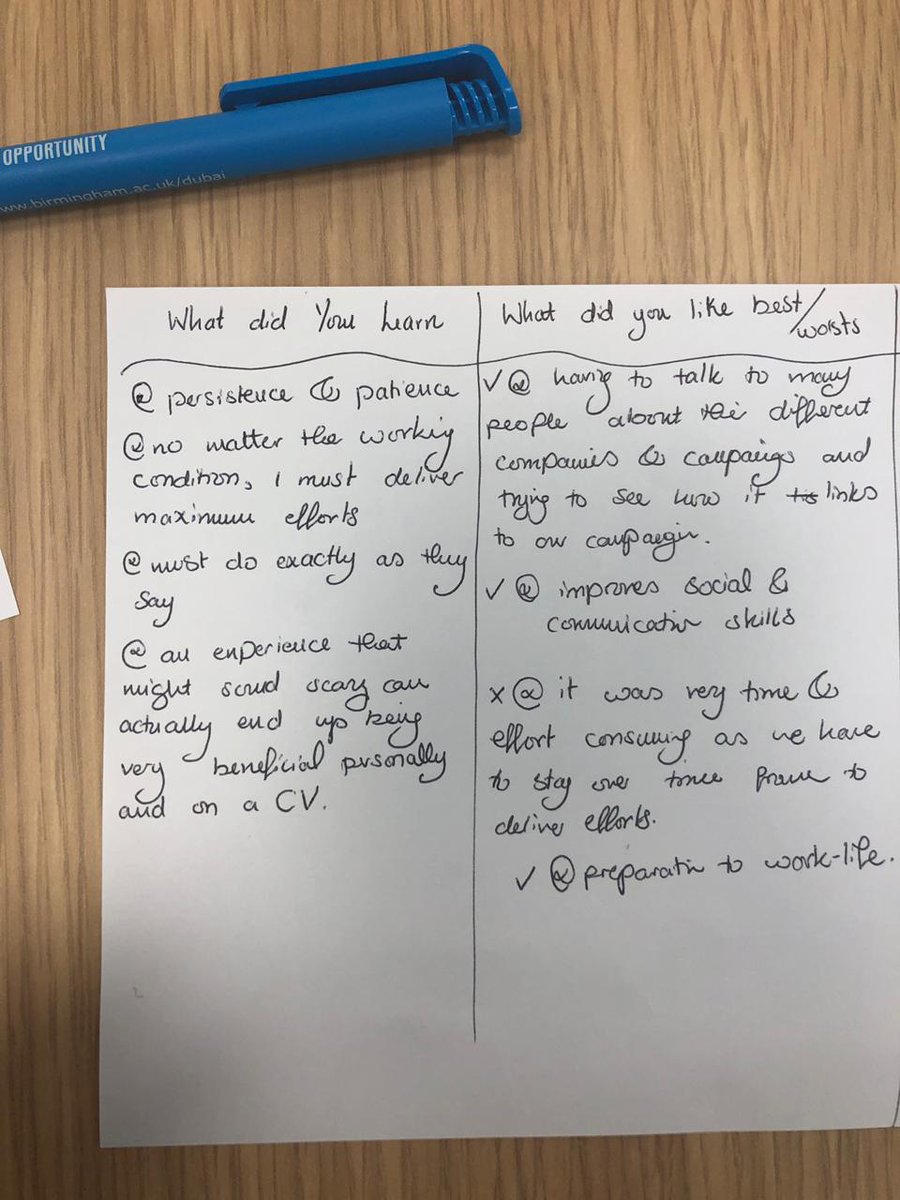 OPPORTUNITY
www.birmingham.ac.uk/dubai
What did You Learn
@ persistence & patience
@ no matter the working
condition, I must deliver
maximum efforts
@ must do exactly as they
say
@ an enperience that
might sound scary can
actually end up being
very beneficial personally
and on a CV.
What did you like best/
worsts
✓ @ having to talk to many
people about their different
companies & campaigs and
trying to see how it links
to our campaign.
✓ @ improves social &
communication skills
x @ it was very time &
effort consuming as we have
to stay over time frame to
deliver efforts.
✓ @ preparation to work-life.